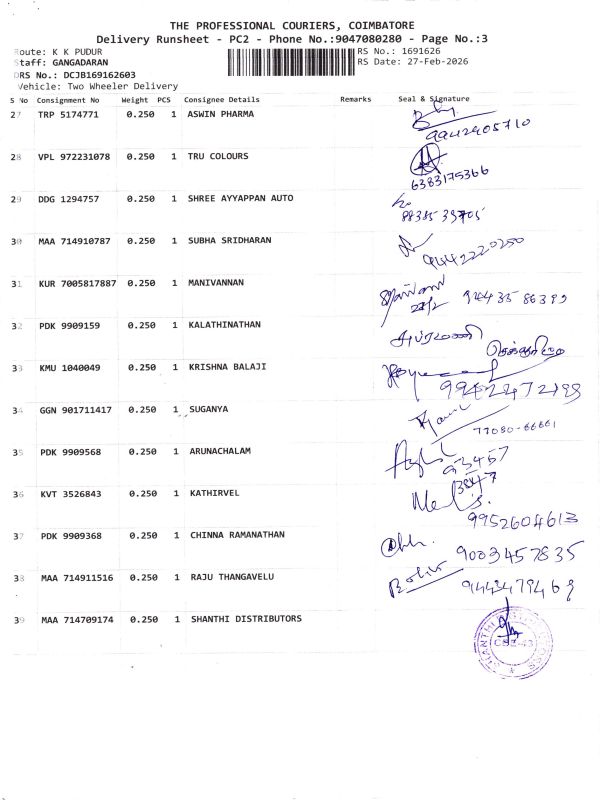 THE PROFESSIONAL COURIERS, COIMBATORE
Delivery Runsheet - PC2 - Phone No.:9047080280 - Page No.:3
Route: K K PUDUR RS No.: 1691626
Staff: GANGADARAN RS Date: 27-Feb-2026
DRS No.: DCJB169162603
Vehicle: Two Wheeler Delivery
S No Consignment No Weight PCS Consignee Details Remarks Seal & Signature
27 TRP 5174771 0.250 1 ASWIN PHARMA
9942905710
28 VPL 972231078 0.250 1 TRU COLOURS
6383175366
29 DDG 1294757 0.250 1 SHREE AYYAPPAN AUTO
30 MAA 714910787 0.250 1 SUBHA SRIDHARAN
9442220250
31 KUR 7005817887 0.250 1 MANIVANNAN
27/2 9443586399
32 PDK 9909159 0.250 1 KALATHINATHAN
33 KMU 1040049 0.250 1 KRISHNA BALAJI
9942472198
34 GGN 901711417 0.250 1 SUGANYA
77080-66661
35 PDK 9909568 0.250 1 ARUNACHALAM
93457
36 KVT 3526843 0.250 1 KATHIRVEL
9952604613
37 PDK 9909368 0.250 1 CHINNA RAMANATHAN
9003457835
38 MAA 714911516 0.250 1 RAJU THANGAVELU
9443479469
39 MAA 714709174 0.250 1 SHANTHI DISTRIBUTORS